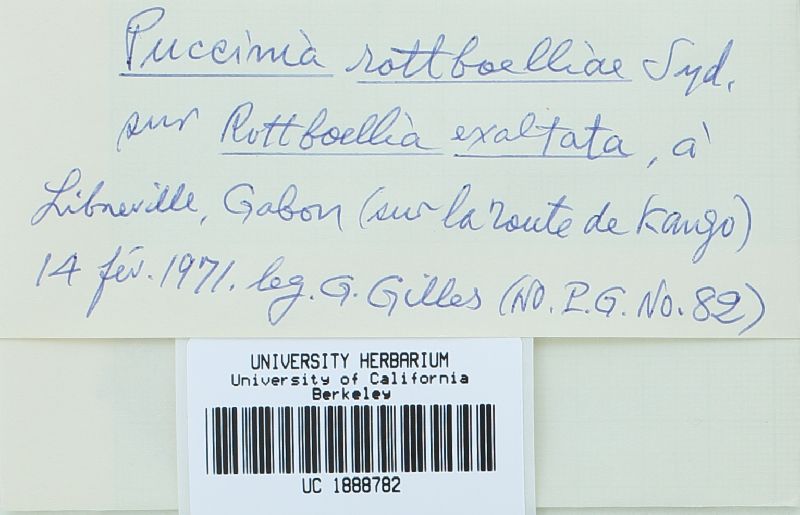 Puccinia rottboelliae Syd.
sur Rottboellia exaltata, à
Libreville, Gabon (sur la route de Kango)
14 fév. 1971. leg. G. Gilles (No. P.G. No. 82)
UNIVERSITY HERBARIUM
University of California
Berkeley
UC 1888782